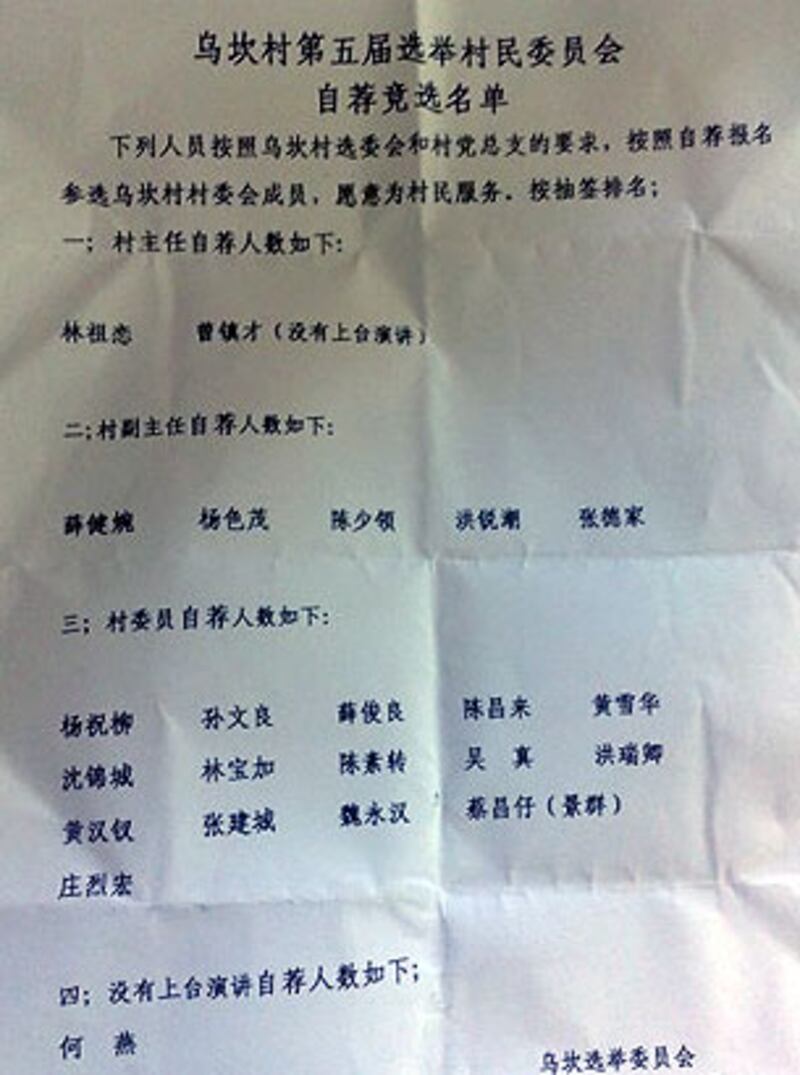 乌坎村第五届选举村民委员会
自荐竞选名单
下列人员按照乌坎村选委会和村党总支的要求，按照自荐报名
参选乌坎村村委会成员，愿意为村民服务。按抽签排名；
一；村主任自荐人数如下：
林祖恋 曾镇才（没有上台演讲）
二；村副主任自荐人数如下：
薛健婉 杨色茂 陈少领 洪锐潮 张德家
三；村委员自荐人数如下：
杨祝柳 孙文良 薛俊良 陈昌来 黄雪华
沈锦城 林宝加 陈素转 吴 真 洪瑞卿
黄汉钗 张建城 魏永汉 蔡昌仔（景群）
庄烈宏
四；没有上台演讲自荐人数如下；
何 燕
乌坎选举委员会